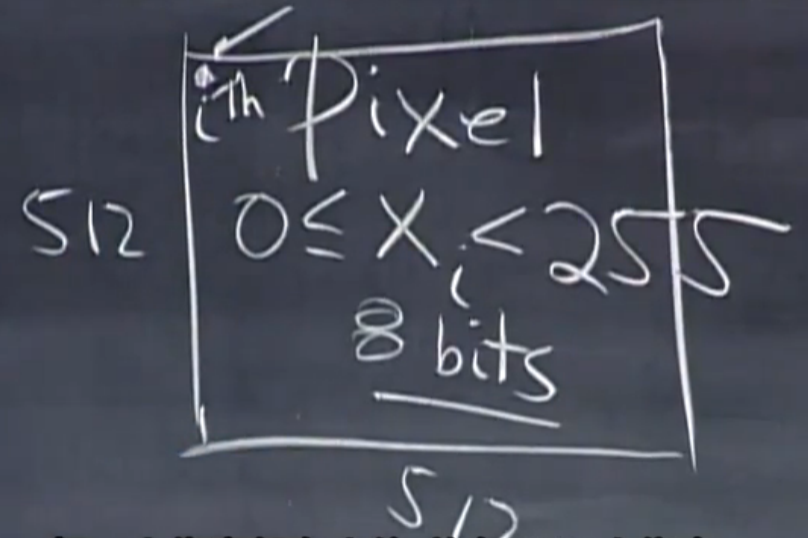 ith Pixel
512 0 ≤ xi < 255
8 bits
512